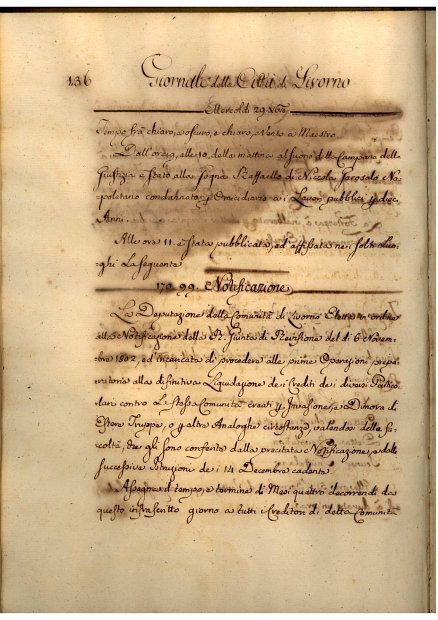 136 Giornale della Città di Livorno
Mercoldì 29 Xbre
Tempo frà chiaro, e oscuro, e chiaro, Vento a Maestro
Dall'ore 9, alle 10, della mattina al suono della Campana della
Giustizia è stato alla Gogna Raffaello di Niccola Na-
poletano condannato p Omicidiario a i Lavori pubblici p dieci
Anni.
Alle ore 11 è stata pubblicata, ed affissata nei soliti Luo-
ghi La seguente
Notificazione
La Deputazione della Comunità di Livorno Eletta in ordine
alla Notificazione della R. Giunta di Revisione del dì 6 Novem-
bre 1802, ed incaricata di procedere alle prime Operazioni prepa-
ratorie alla difinitiva Liquidazione dei Crediti de i diversi Partico-
lari contro La stessa Comunità creati p Invasione, e Dimora di
Estere Truppe, o p altre Analoghe circostanze, valendosi della fa-
coltà, che gli sono conferite dalla precitata Notificazione, e dalle
successive Istruzioni de i 14 Decembre cadente
Assegna il tempo, e termine di Mesi quattro decorrendi da
questo infrascritto giorno a tutti i Creditori di detta Comunità